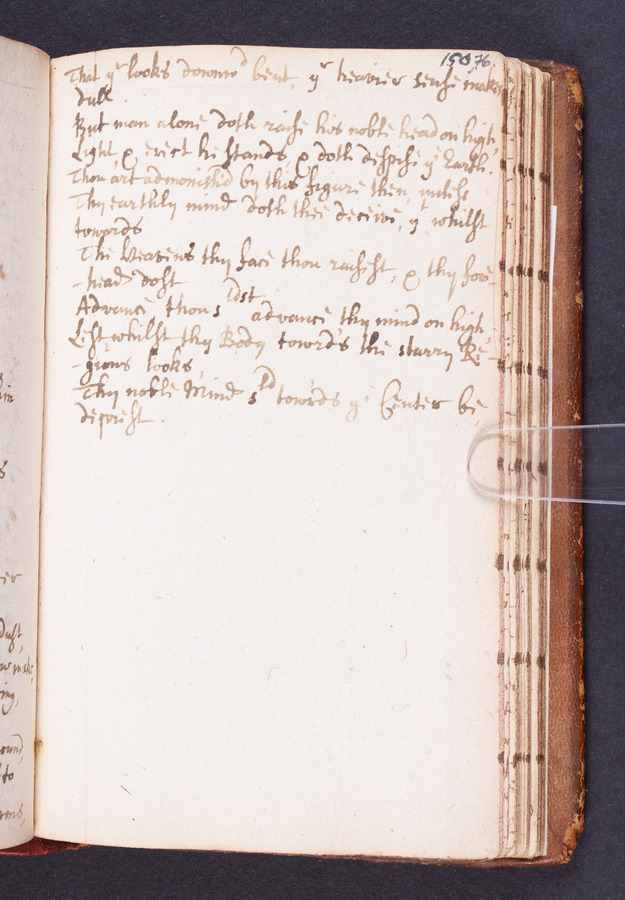 150,76.
That ye looks downwd bent, yr heavier sense makes
dull.
But man alone doth raise his noble head on high
Light & erect he stands & doth despise ye Earth.
Thou art admonish'd by this figure then, unless
Thy earthly mind doth thee deceive, yt whilst
towards
The Heavens thy face thou raisest, & thy fore
-head dost
Advance, thou sldst advance thy mind on high,
Lest whilst thy Body towards the starry Re
-gions looks,
Thy noble Mind sld towards ye Center be,
deprest.
in
s
er
dust,
ing,
ound,
to